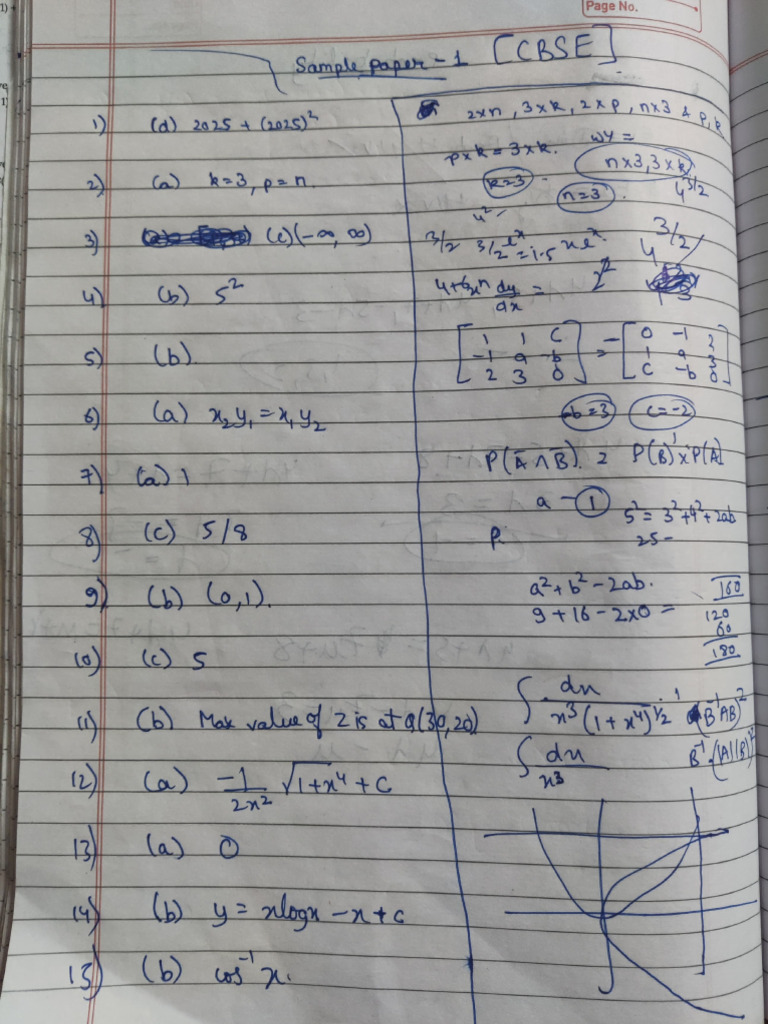 Page No.
Sample paper - 1 [CBSE]
1) (d) 2025 + (2025)²
2) (a) k=3, p=n.
3) (c) (-∞, ∞)
4) (b) 5²
5) (b).
6) (a) x₂y₁ = x₁y₂
7) (a) 1
8) (c) 5/8
9) (b) (0,1).
10) (c) 5
11) (b) Max value of Z is at Q(30,20)
12) (a) -1/2x² √1+x⁴ + C
13) (a) 0
14) (b) y = xlogx - x + c
15) (b) cos⁻¹ x.
2xn, 3xk, 2xp, nx3 & p,k
wy =
pxk = 3xk.
nx3, 3xk
k=3
n=3
4^3/2
4²
3/2 3/2 eˣ = 1.5 xeˣ.
4 3/2
dy/dx =
[1 1 c
-1 a -b
2 3 0] = -[0 -1 2
1 a 3
c -b 0]
b=3 c=-2
P(A̅ ∩ B̅). P(B)' x P(A)
a - 1
5² = 3² + 4² + 2ab
25 -
P.
a² + b² - 2ab.
9 + 16 - 2x0 =
160
120
60
180
∫ dx / x³(1+x⁴)^1/2
(B⁻¹AB)²
∫ dx / x³
B⁻¹.(|A||B|)²